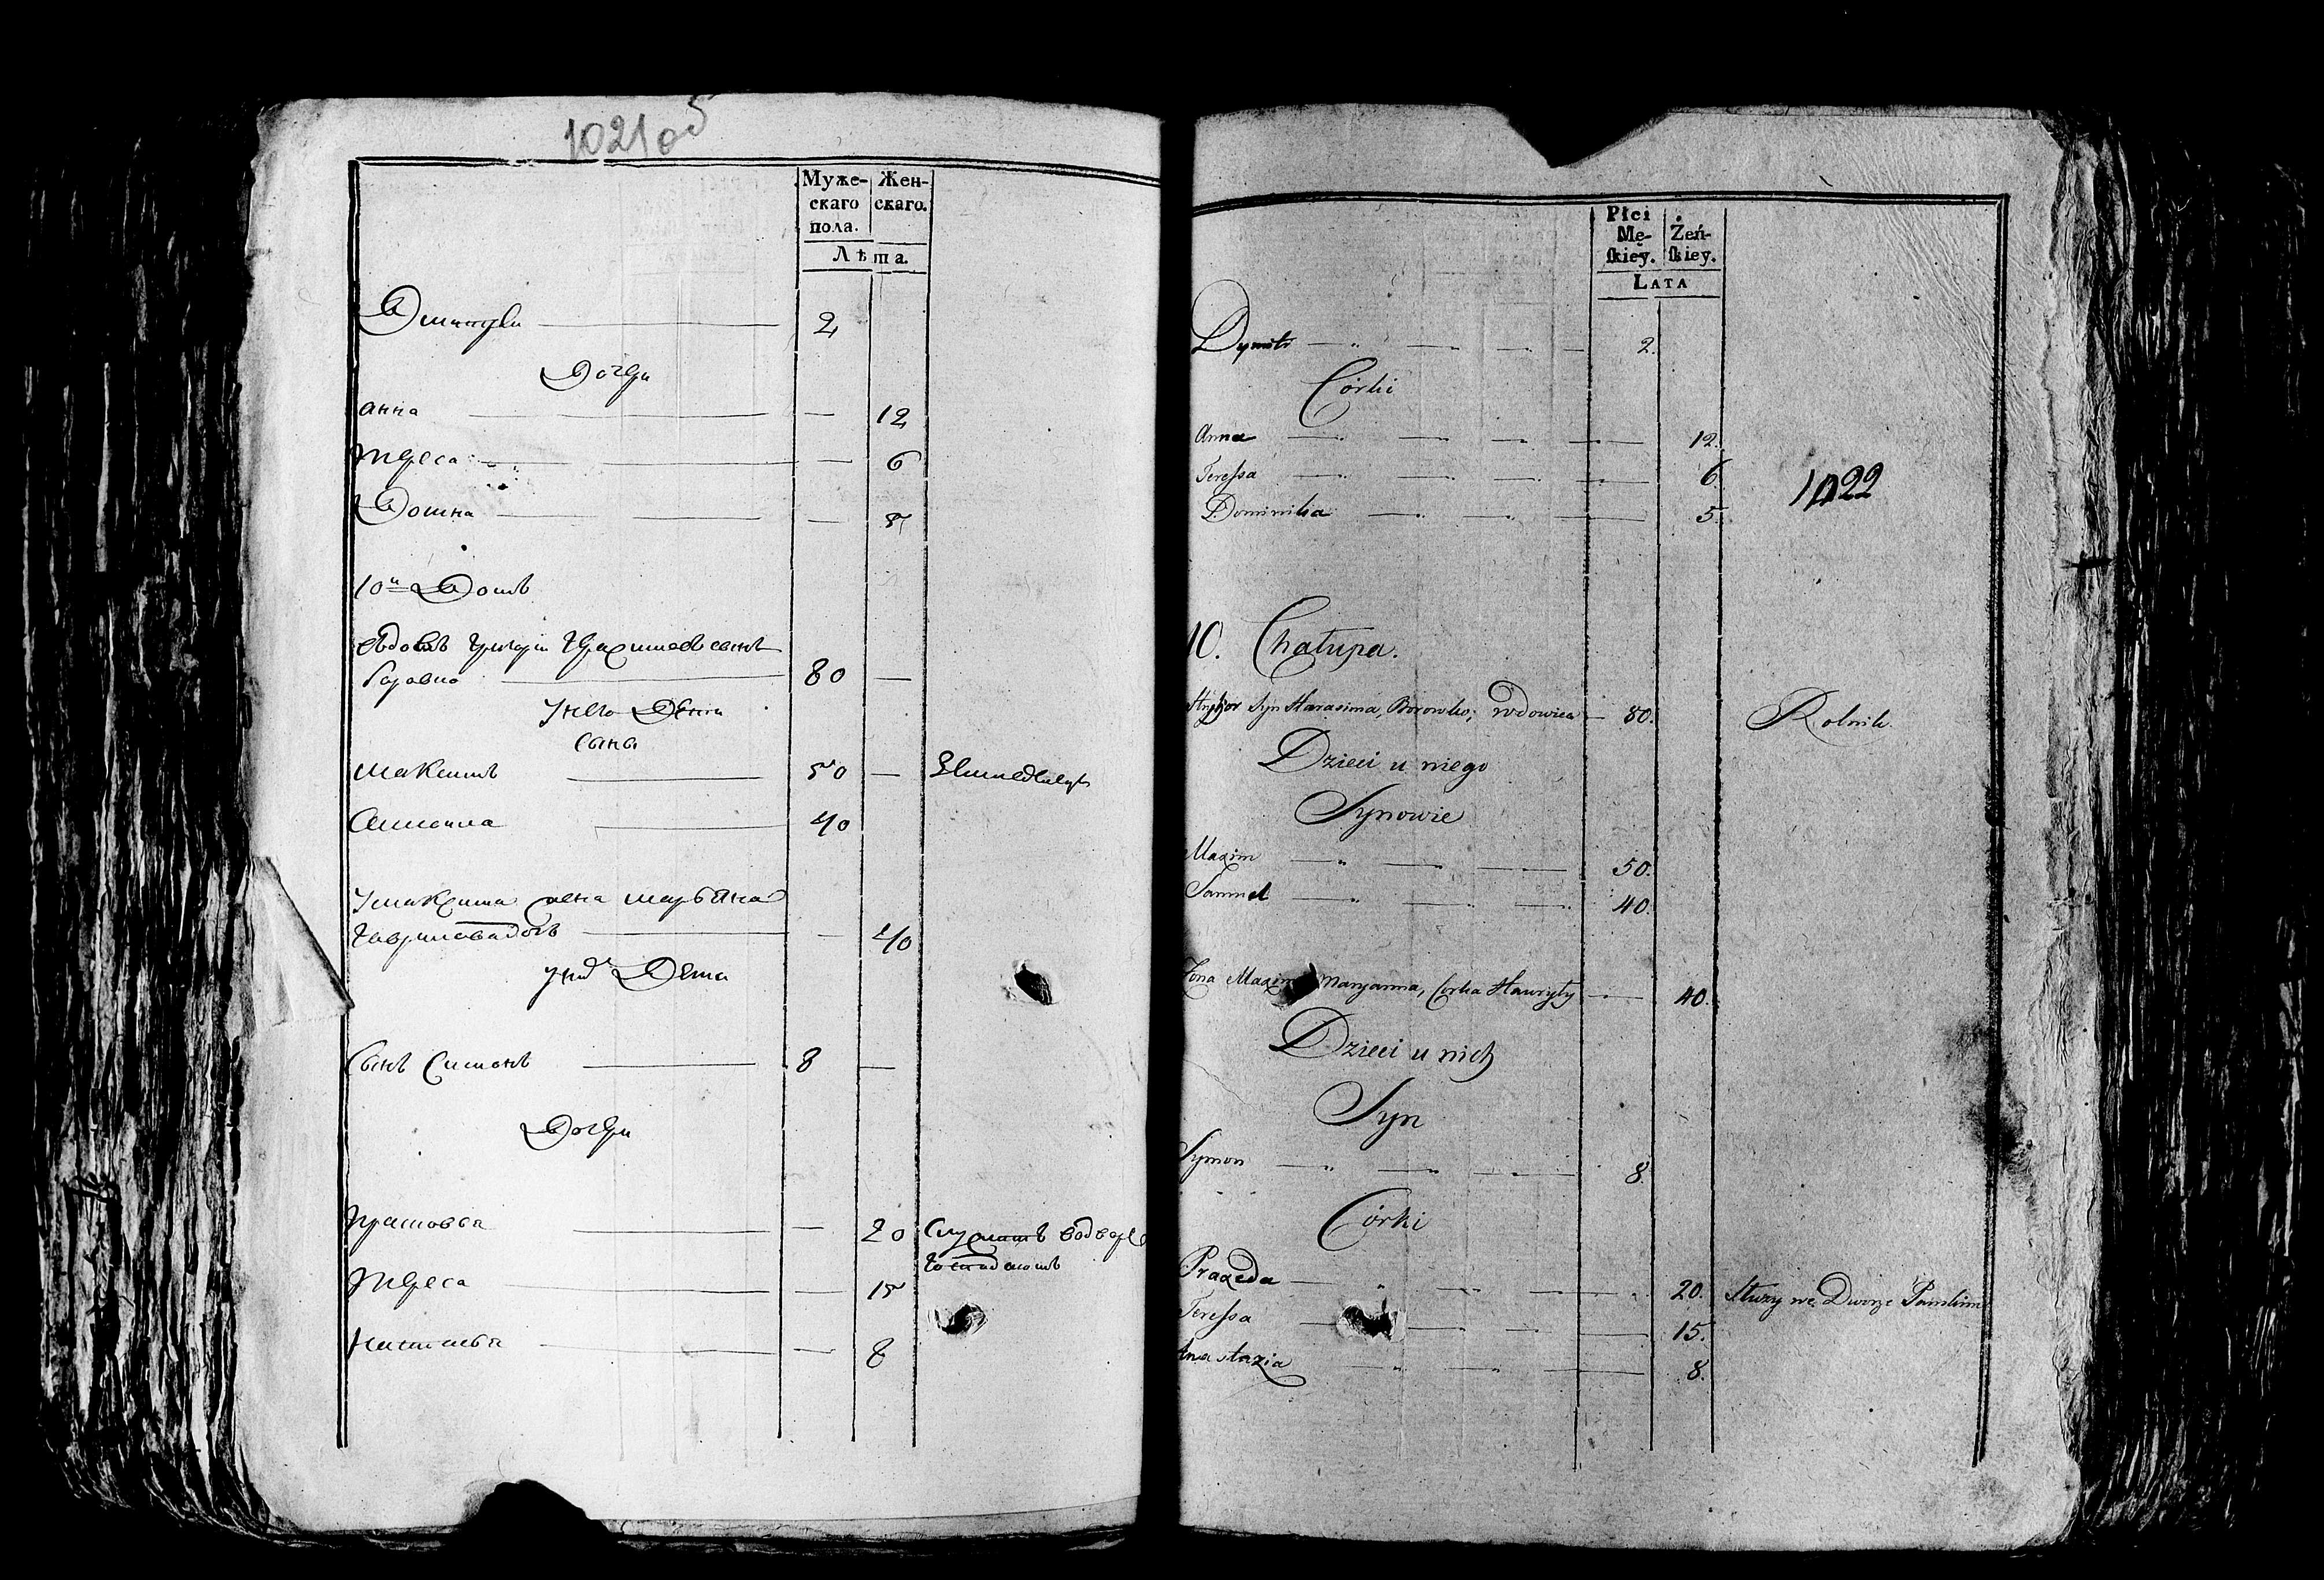 1021об
Муже- Жен-
скаго скаго.
пола.
Лѣта.
Дмитрей 2
Дочери
анна — 12
тереса — 6
Домна — 5
10й Домъ
вдовъ григори герасимовъ сынъ
боровко 80 —
У него Дети
сыны
максимъ 50 — Земледелецъ
Самойла 40
У максима жена марьяна
гаврилова дочь — 40
у них Дети
Сынъ Симонъ 8 —
Дочери
— 20 Служитъ во дворе
господскомъ
тереса — 15
— 8
Płci
Mę- Żeń-
skiey. skiey.
LATA
Dymitr 2.
Córki
Anna 12.
Teressa 6
Dominika 5.
1022
10. Chałupa.
Hryhor Syn Harasima, Borowko; wdowiec 80. Rolnik.
Dzieci u niego
Synowie
Maxim 50.
Samuel 40.
Żona Maxima Maryanna, Córka Hawryły 40.
Dzieci u nich
Syn
Symon 8
Córki
Praxeda 20. służy we Dworze Pańskim
Teressa 15.
Anastazia 8.